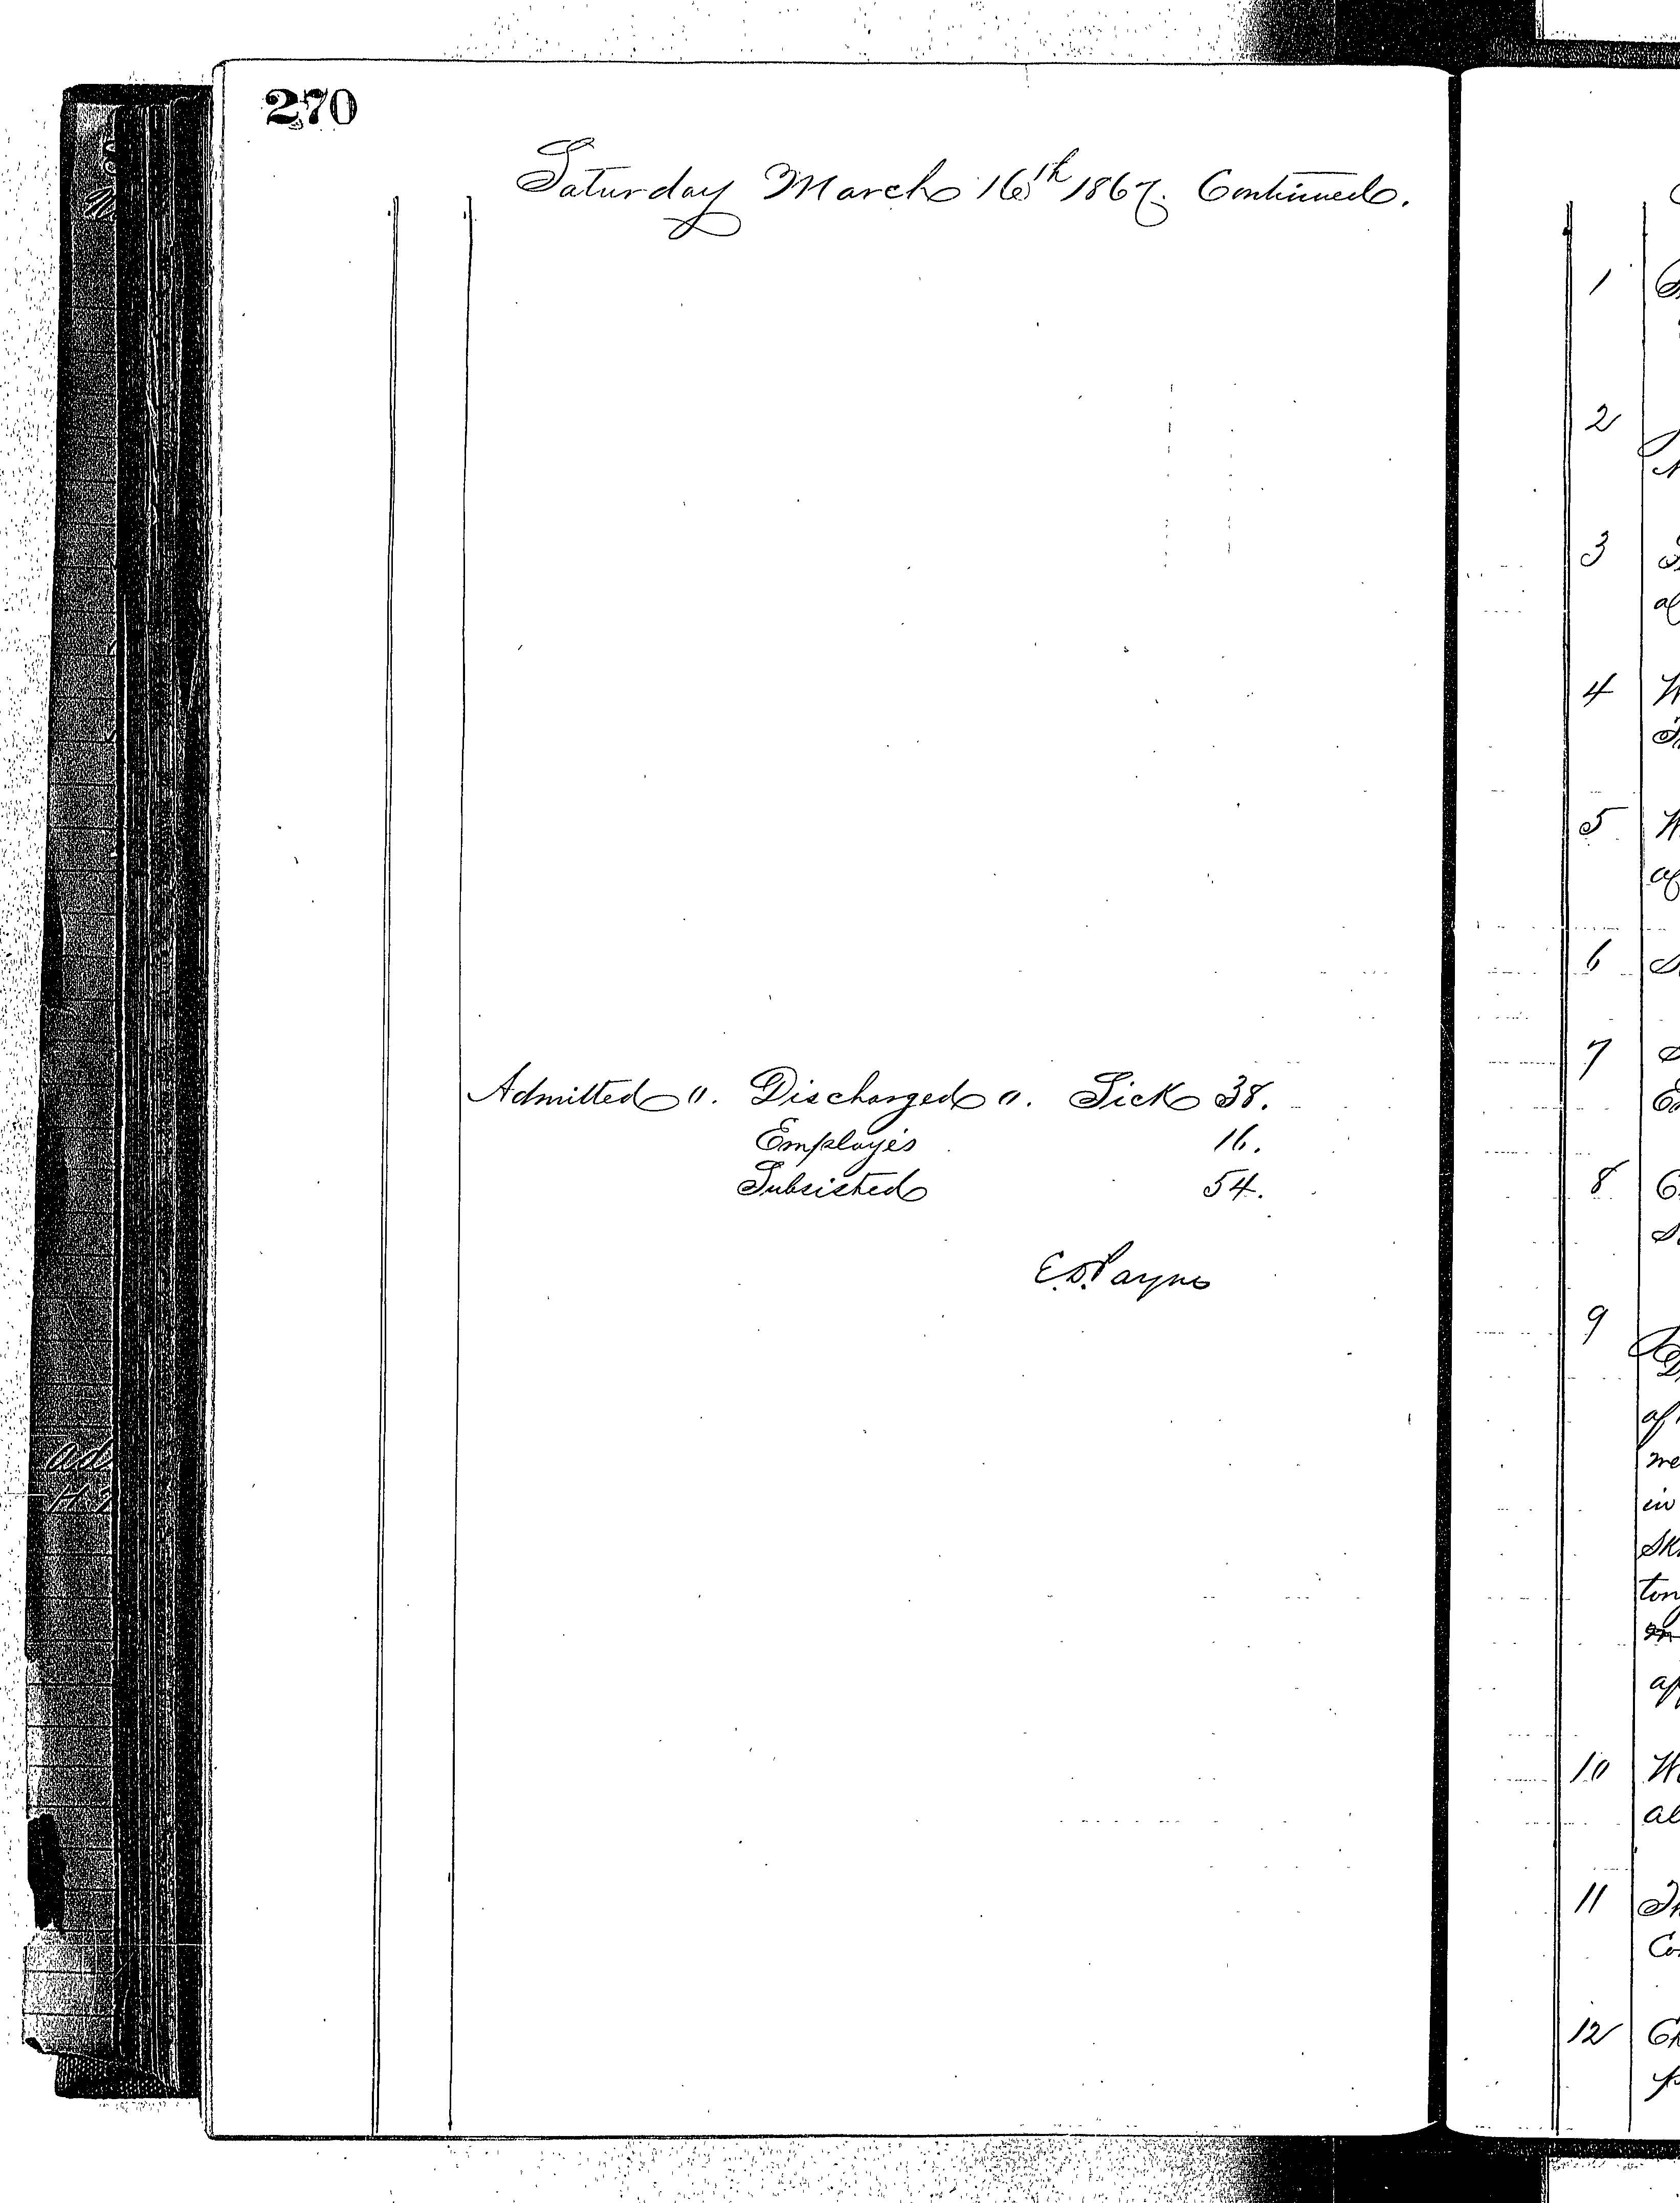 270
Saturday March 16th 1867. Continued.
Admitted 0. Discharged 0. Sick 38.
Employés 16.
Subsisted 54.
E.D. Payne
1
2
3
4
5
6
7
8
9
of
me
in
10
11
12